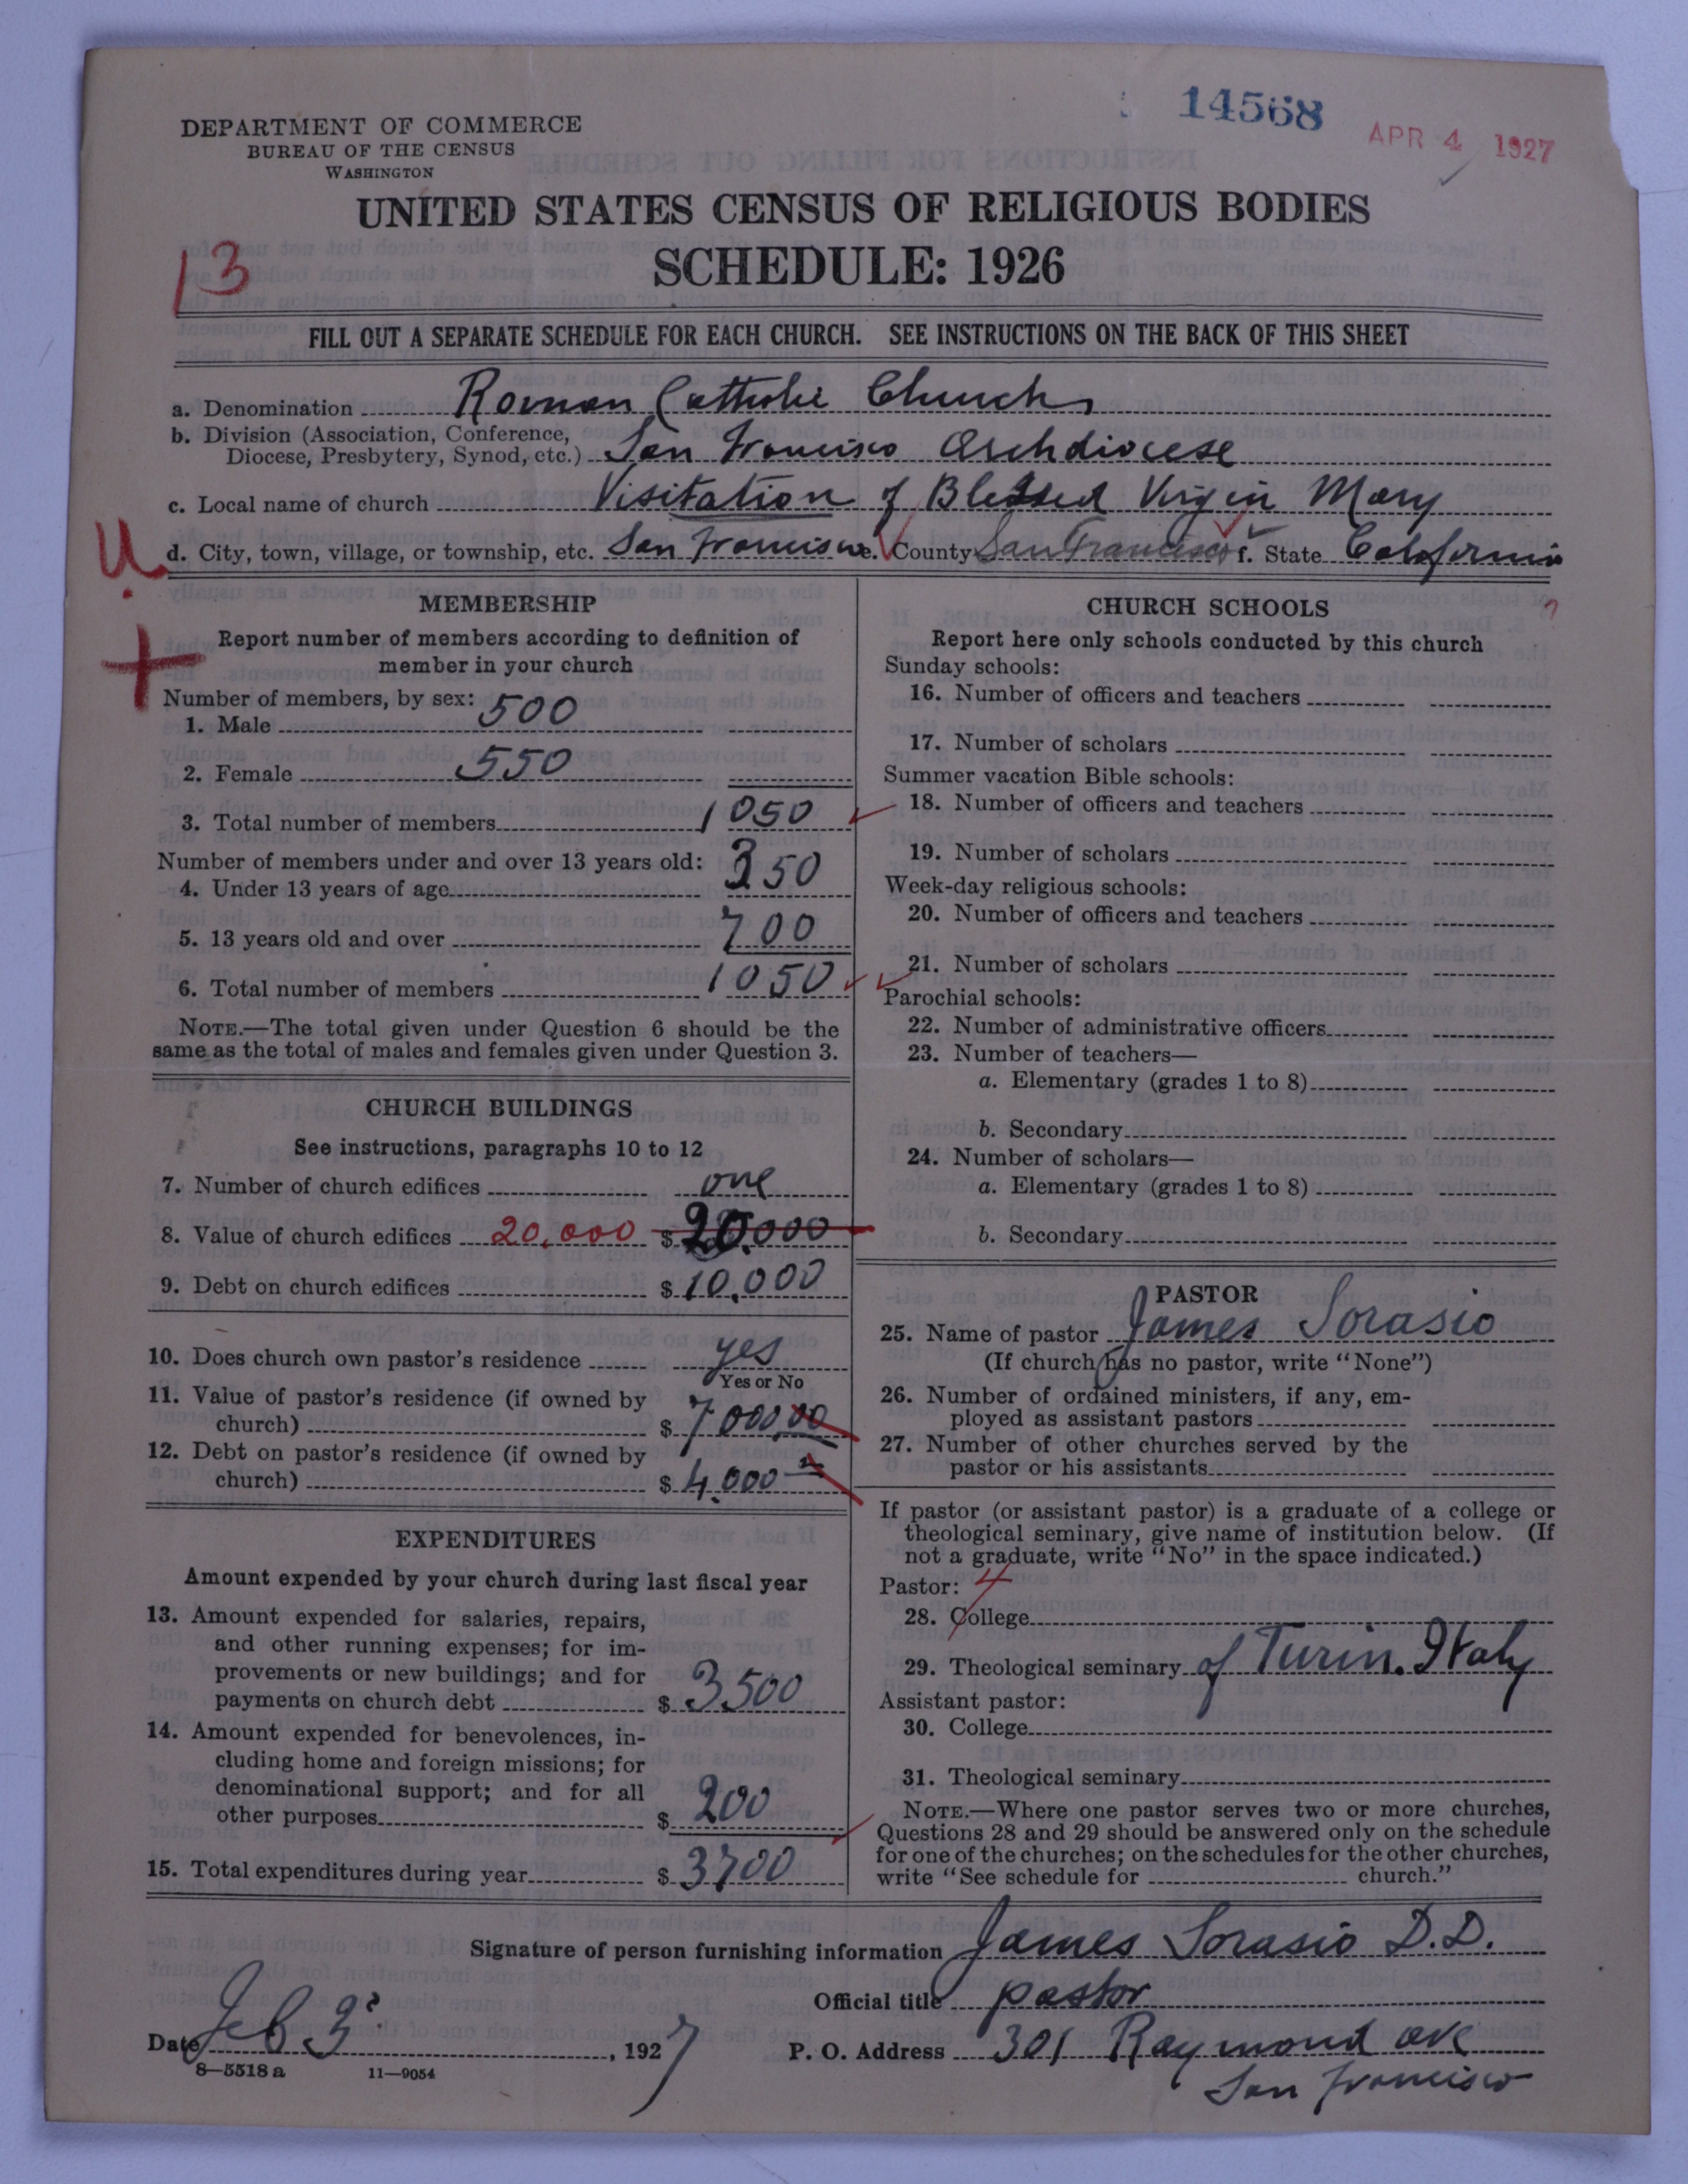 14568
APR 4 1927
DEPARTMENT OF COMMERCE
BUREAU OF THE CENSUS
WASHINGTON
UNITED STATES CENSUS OF RELIGIOUS BODIES
13
SCHEDULE: 1926
FILL OUT A SEPARATE SCHEDULE FOR EACH CHURCH. SEE INSTRUCTIONS ON THE BACK OF THIS SHEET
a. Denomination Roman Catholic Church
b. Division (Association, Conference,
Diocese, Presbytery, Synod, etc.) San Francisco Archdiocese
c. Local name of church Visitation of Blessed Virgin Mary
U
d. City, town, village, or township, etc. San Francisco e. County San Francisco f. State California
MEMBERSHIP
Report number of members according to definition of
member in your church
Number of members, by sex:
1. Male 500
2. Female 550
3. Total number of members 1050
Number of members under and over 13 years old:
4. Under 13 years of age 350
5. 13 years old and over 700
6. Total number of members 1050
NOTE.—The total given under Question 6 should be the
same as the total of males and females given under Question 3.
CHURCH BUILDINGS
See instructions, paragraphs 10 to 12
7. Number of church edifices one
8. Value of church edifices 20,000 $ 20.000
9. Debt on church edifices $ 10,000
10. Does church own pastor's residence yes
Yes or No
11. Value of pastor's residence (if owned by
church) $ 7000.00
12. Debt on pastor's residence (if owned by
church) $ 4.000
EXPENDITURES
Amount expended by your church during last fiscal year
13. Amount expended for salaries, repairs,
and other running expenses; for im-
provements or new buildings; and for
payments on church debt $ 3500
14. Amount expended for benevolences, in-
cluding home and foreign missions; for
denominational support; and for all
other purposes $ 200
15. Total expenditures during year $ 3700
CHURCH SCHOOLS
Report here only schools conducted by this church
Sunday schools:
16. Number of officers and teachers
17. Number of scholars
Summer vacation Bible schools:
18. Number of officers and teachers
19. Number of scholars
Week-day religious schools:
20. Number of officers and teachers
21. Number of scholars
Parochial schools:
22. Number of administrative officers
23. Number of teachers—
a. Elementary (grades 1 to 8)
b. Secondary
24. Number of scholars—
a. Elementary (grades 1 to 8)
b. Secondary
PASTOR
25. Name of pastor James Sorasio
(If church has no pastor, write "None")
26. Number of ordained ministers, if any, em-
ployed as assistant pastors
27. Number of other churches served by the
pastor or his assistants
If pastor (or assistant pastor) is a graduate of a college or
theological seminary, give name of institution below. (If
not a graduate, write "No" in the space indicated.)
Pastor: 4
28. College
29. Theological seminary of Turin. Italy
Assistant pastor:
30. College
31. Theological seminary
NOTE.—Where one pastor serves two or more churches,
Questions 28 and 29 should be answered only on the schedule
for one of the churches; on the schedules for the other churches,
write "See schedule for church."
Signature of person furnishing information James Sorasio D.D.
Official title pastor
Date Feb 3, 1927
P. O. Address 301 Raymond ave
San Francisco
8—5518 a 11—9054